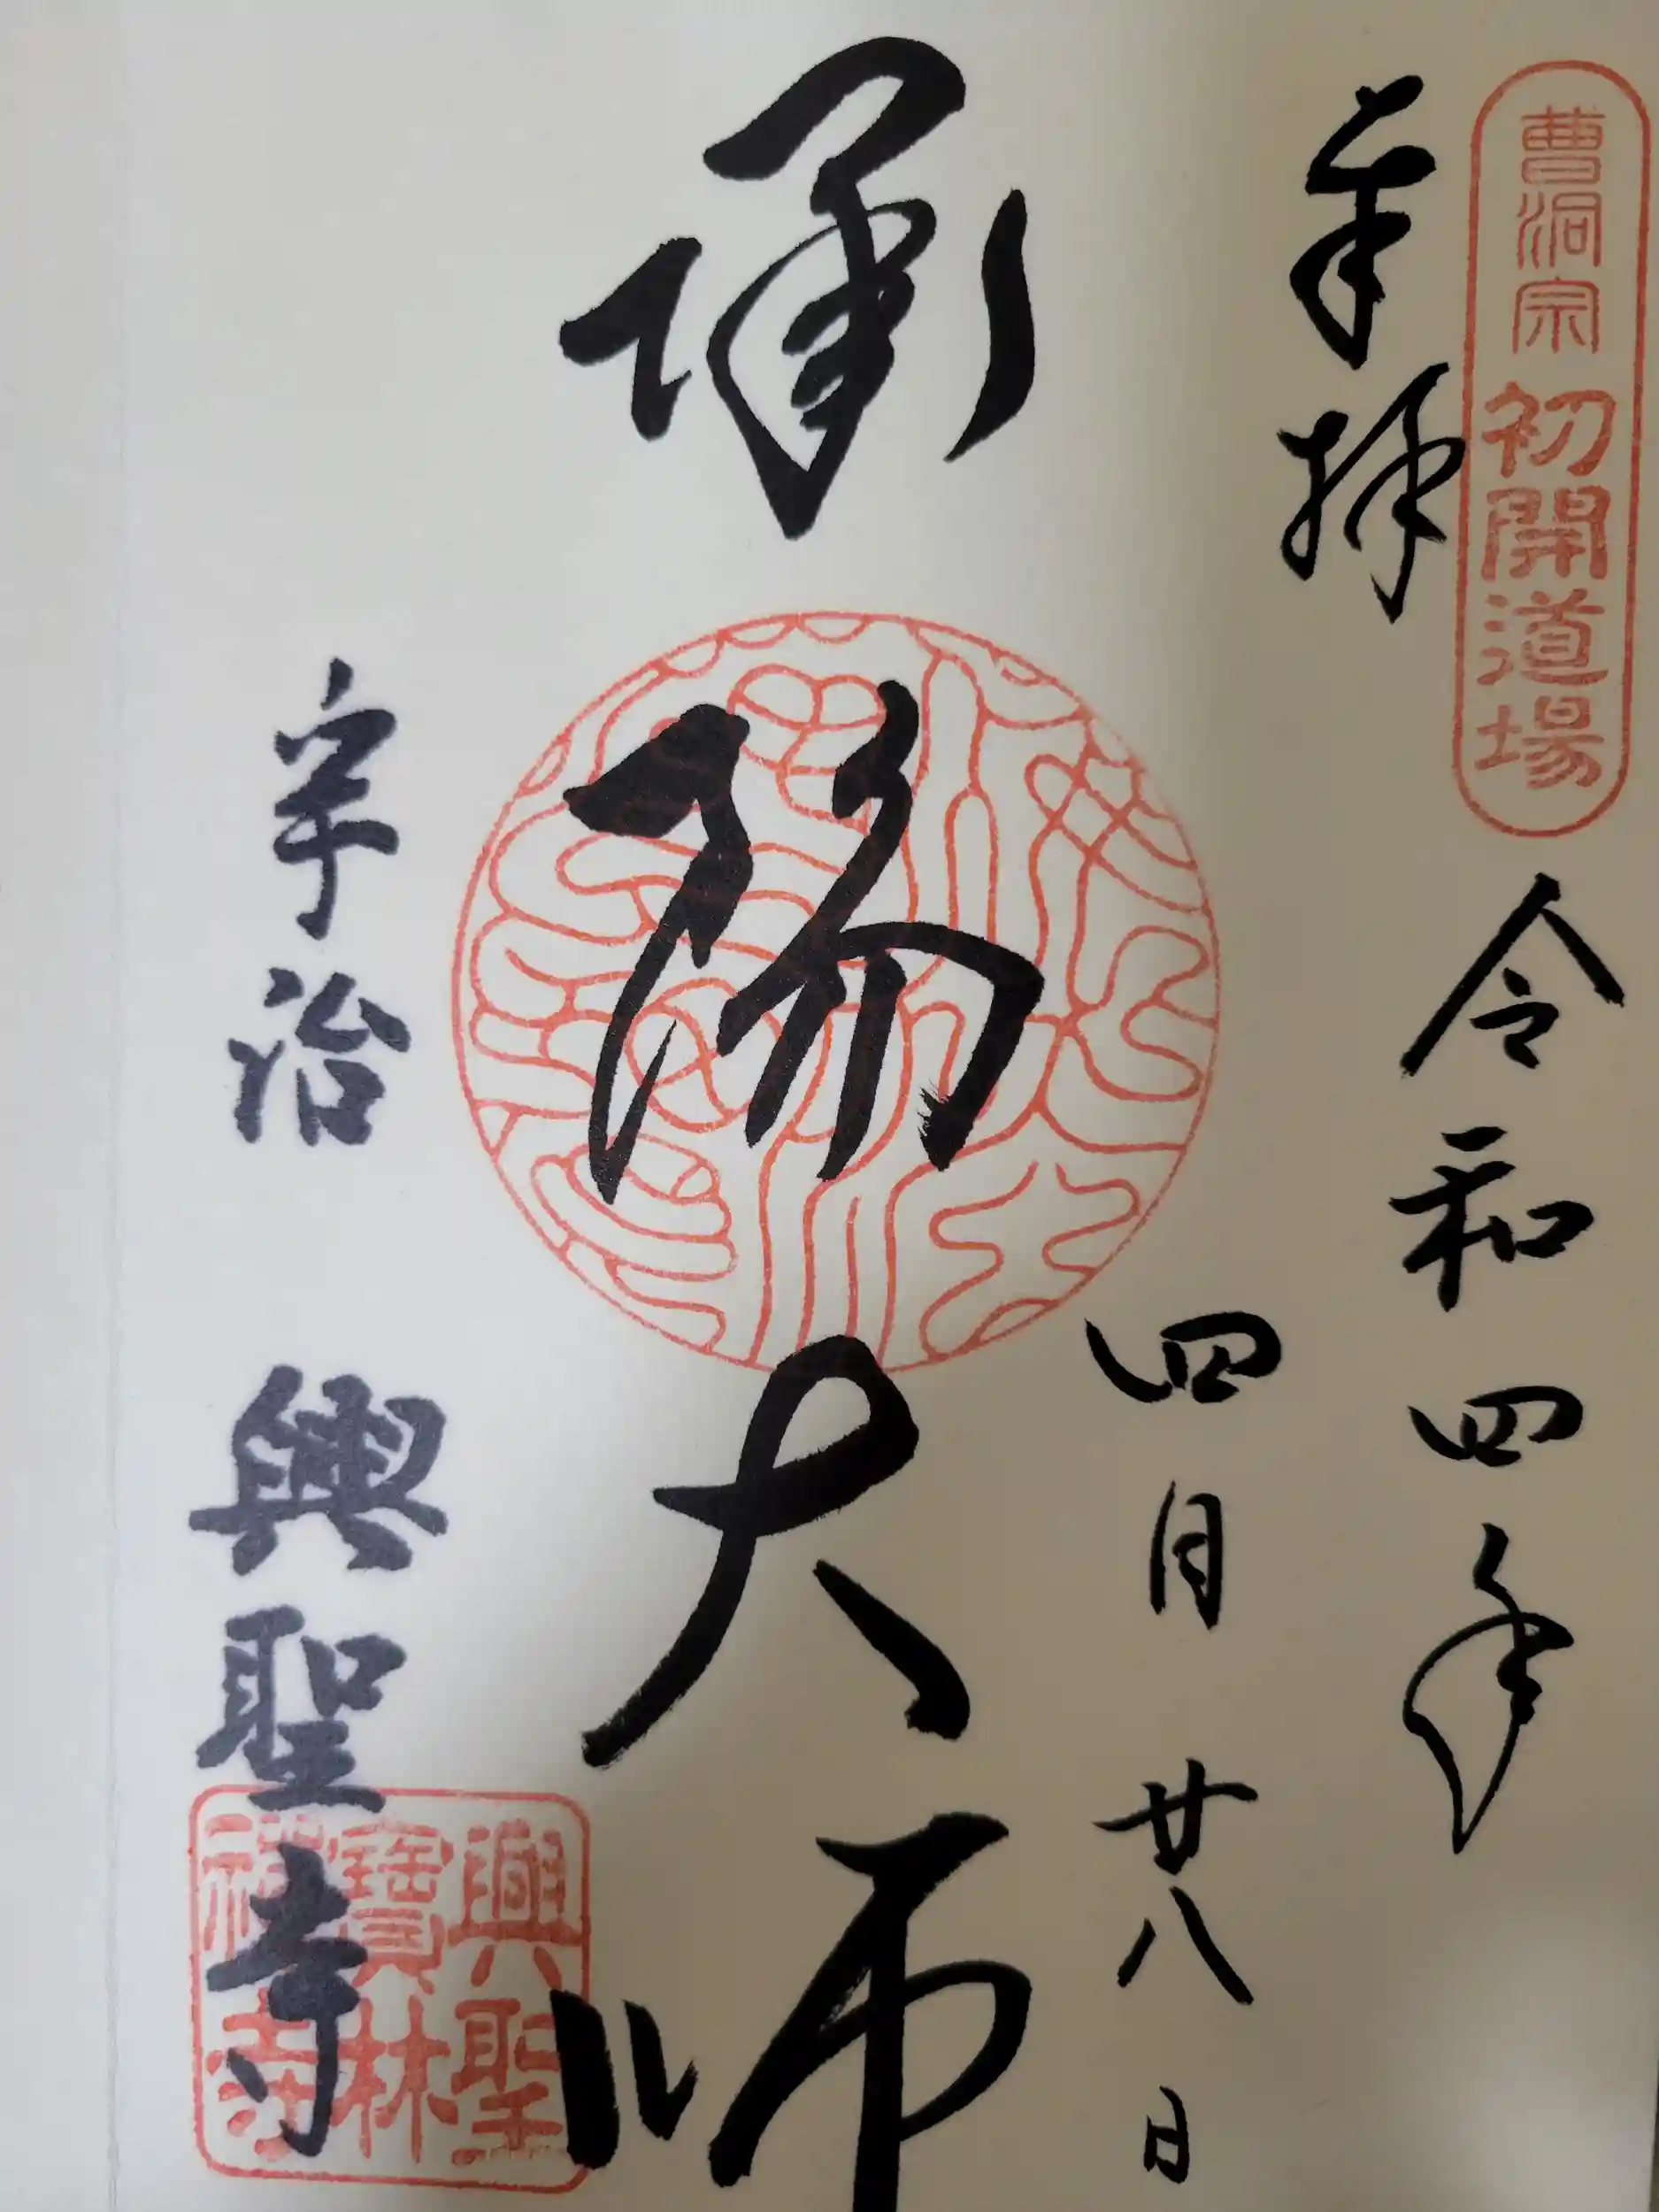 曹洞宗 初開道場
奉拝
令和四年
四月廿八日
承陽大師
宇治 興聖寺
興聖
寶林
禅寺